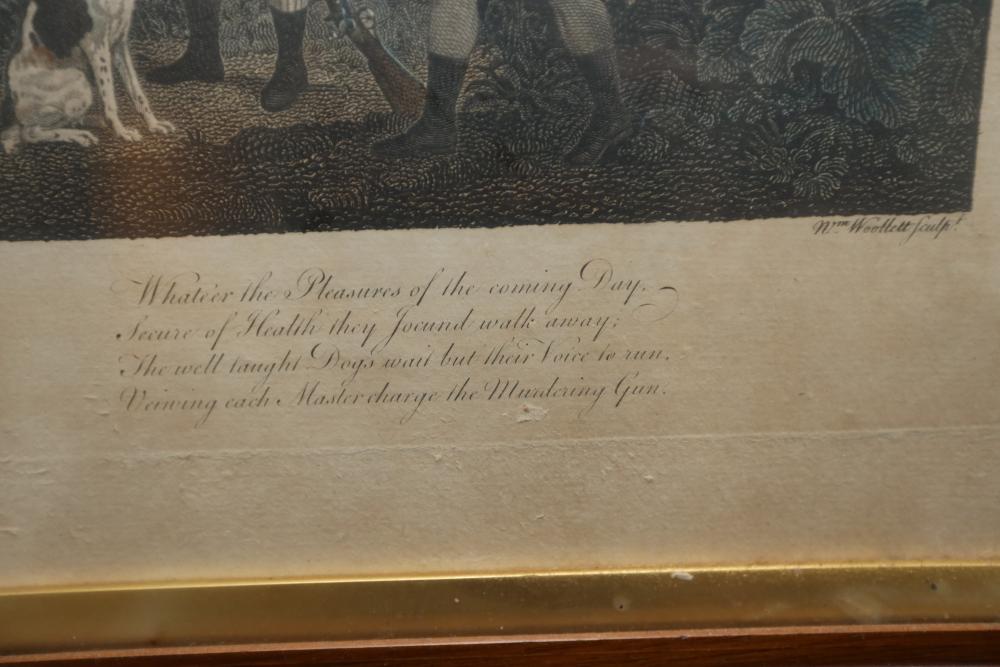 Wm. Woollett sculpt.
Whate'er the Pleasures of the coming Day,
Secure of Health they Jocund walk away;
The well taught Dogs wait but their Voice to run,
Veiwing each Master charge the Murdering Gun.